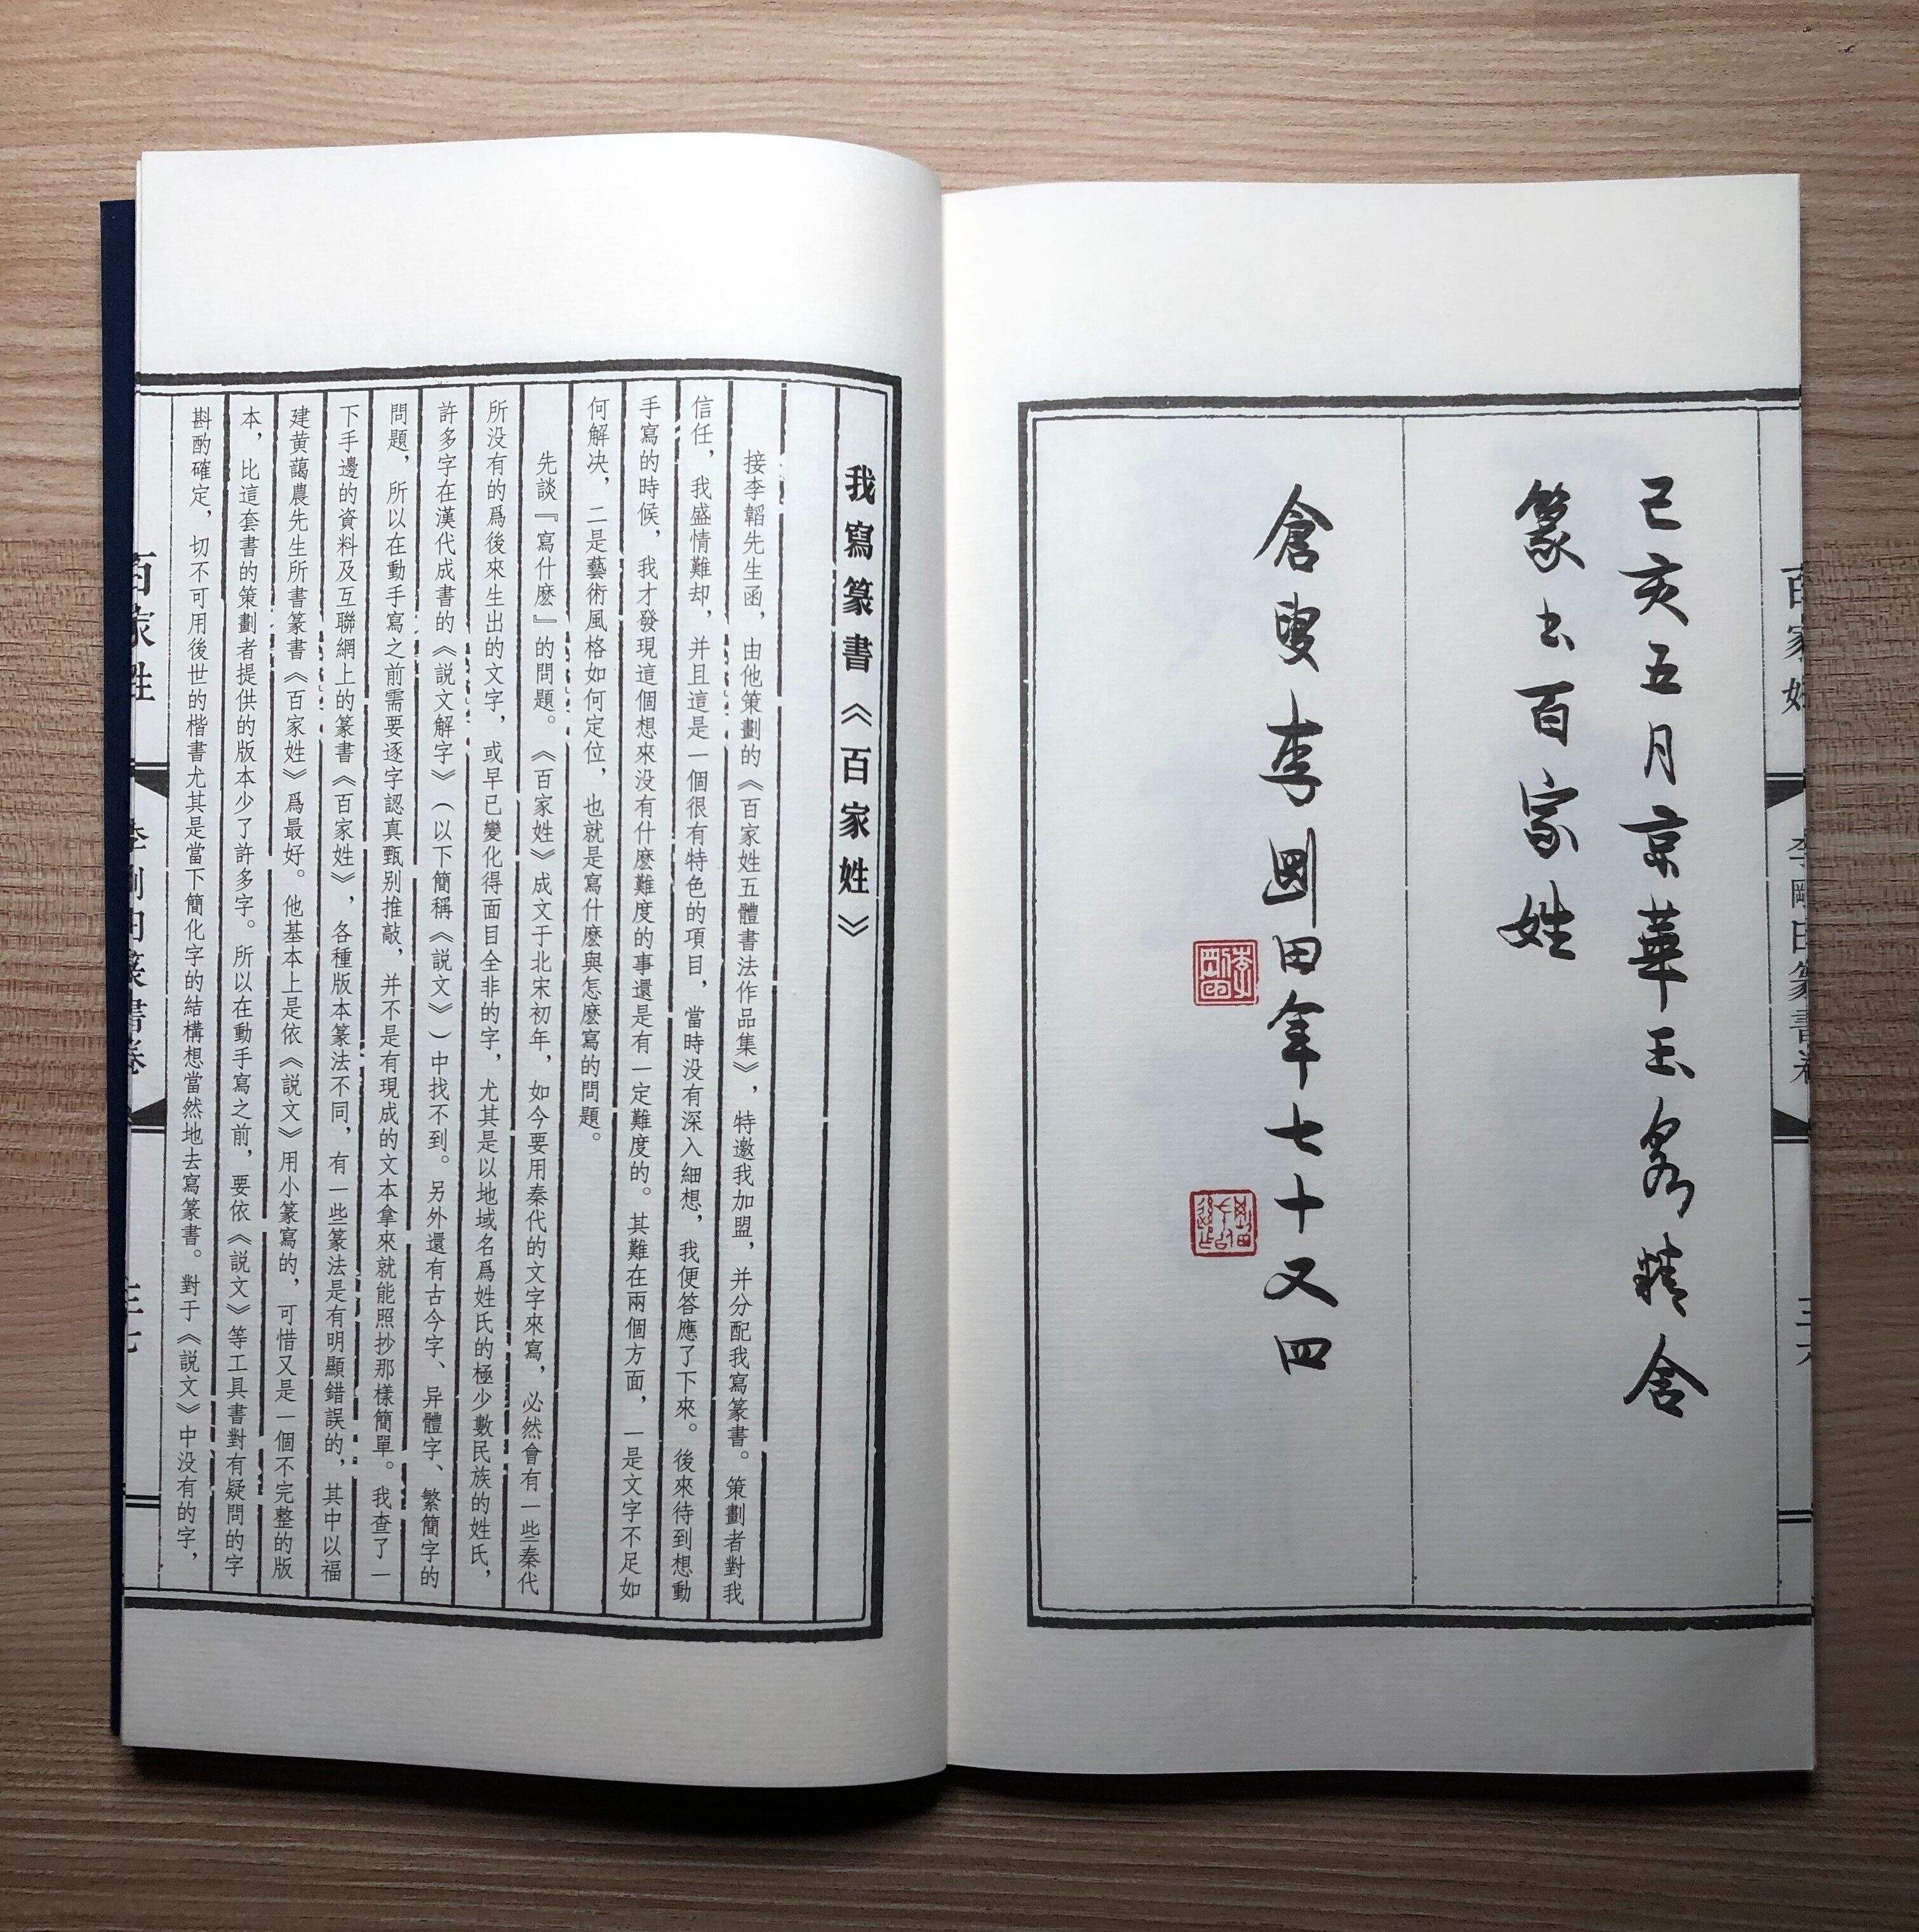 己亥五月京華玉泉精舍
篆书百家姓
倉叟李剛田年七十又四
李剛田
百家姓
李剛田篆書卷
三六
我寫篆書《百家姓》
接李韜先生函，由他策劃的《百家姓五體書法作品集》，特邀我加盟，并分配我寫篆書。策劃者對我
信任，我盛情難却，并且這是一個很有特色的項目，當時没有深入細想，我便答應了下來。後來待到想動
手寫的時候，我才發現這個想來没有什麽難度的事還是有一定難度的。其難在兩個方面，一是文字不足如
何解决，二是藝術風格如何定位，也就是寫什麽與怎麽寫的問題。
先談『寫什麽』的問題。《百家姓》成文于北宋初年，如今要用秦代的文字來寫，必然會有一些秦代
所没有的爲後來生出的文字，或早已變化得面目全非的字，尤其是以地域名爲姓氏的極少數民族的姓氏，
許多字在漢代成書的《説文解字》（以下簡稱《説文》）中找不到。另外還有古今字、异體字、繁簡字的
問題，所以在動手寫之前需要逐字認真甄别推敲，并不是有現成的文本拿來就能照抄那樣簡單。我查了一
下手邊的資料及互聯網上的篆書《百家姓》，各種版本篆法不同，有一些篆法是有明顯錯誤的，其中以福
建黄藹農先生所書篆書《百家姓》爲最好。他基本上是依《説文》用小篆寫的，可惜又是一個不完整的版
本，比這套書的策劃者提供的版本少了許多字。所以在動手寫之前，要依《説文》等工具書對有疑問的字
斟酌確定，切不可用後世的楷書尤其是當下簡化字的結構想當然地去寫篆書。對于《説文》中没有的字，
百家姓
李剛田篆書卷
三七